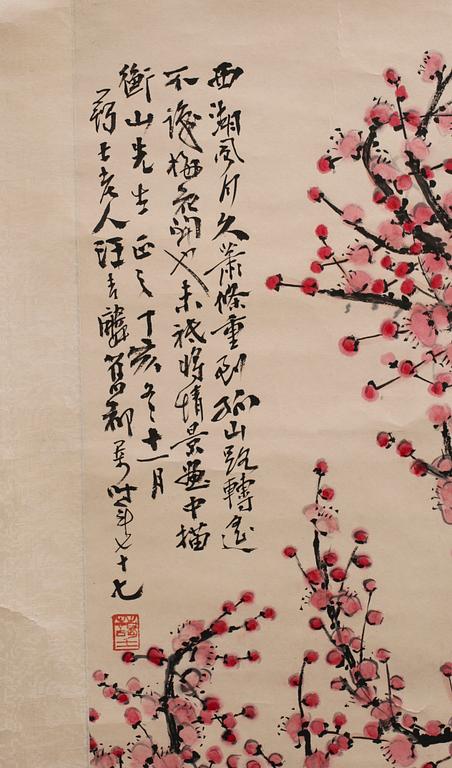 西湖風月久蕭條重到孤山路轉遙
不識梅花開也未祗將情景畫中描
衡山先生正之丁亥冬十一月
藹士老人汪吉麟舊都時年七十七